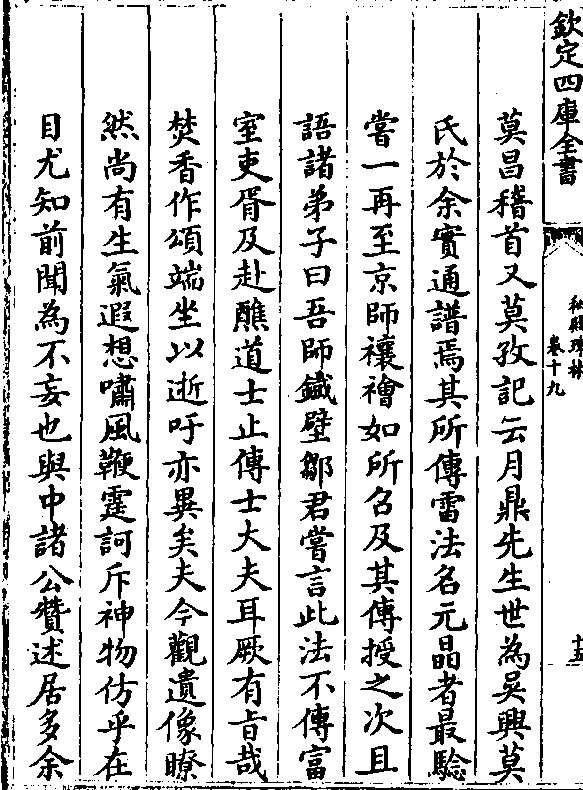 欽定四庫全書
秘殿珠林
卷十九
十五
莫昌稽首又莫孜記云月鼎先生世為吳興莫
氏於余實通譜焉其所傳雷法名元晶者最驗
嘗一再至京師禳禬如所召及其傳授之次且
語諸弟子曰吾師鐵壁鄒君嘗言此法不傳富
室吏胥及赴醮道士止傳士大夫耳厥有旨哉
焚香作頌端坐以逝吁亦異矣夫今觀遺像瞭
然尚有生氣遐想嘯風鞭霆訶斥神物仿乎在
目尤知前聞為不妄也與中諸公贊述居多余